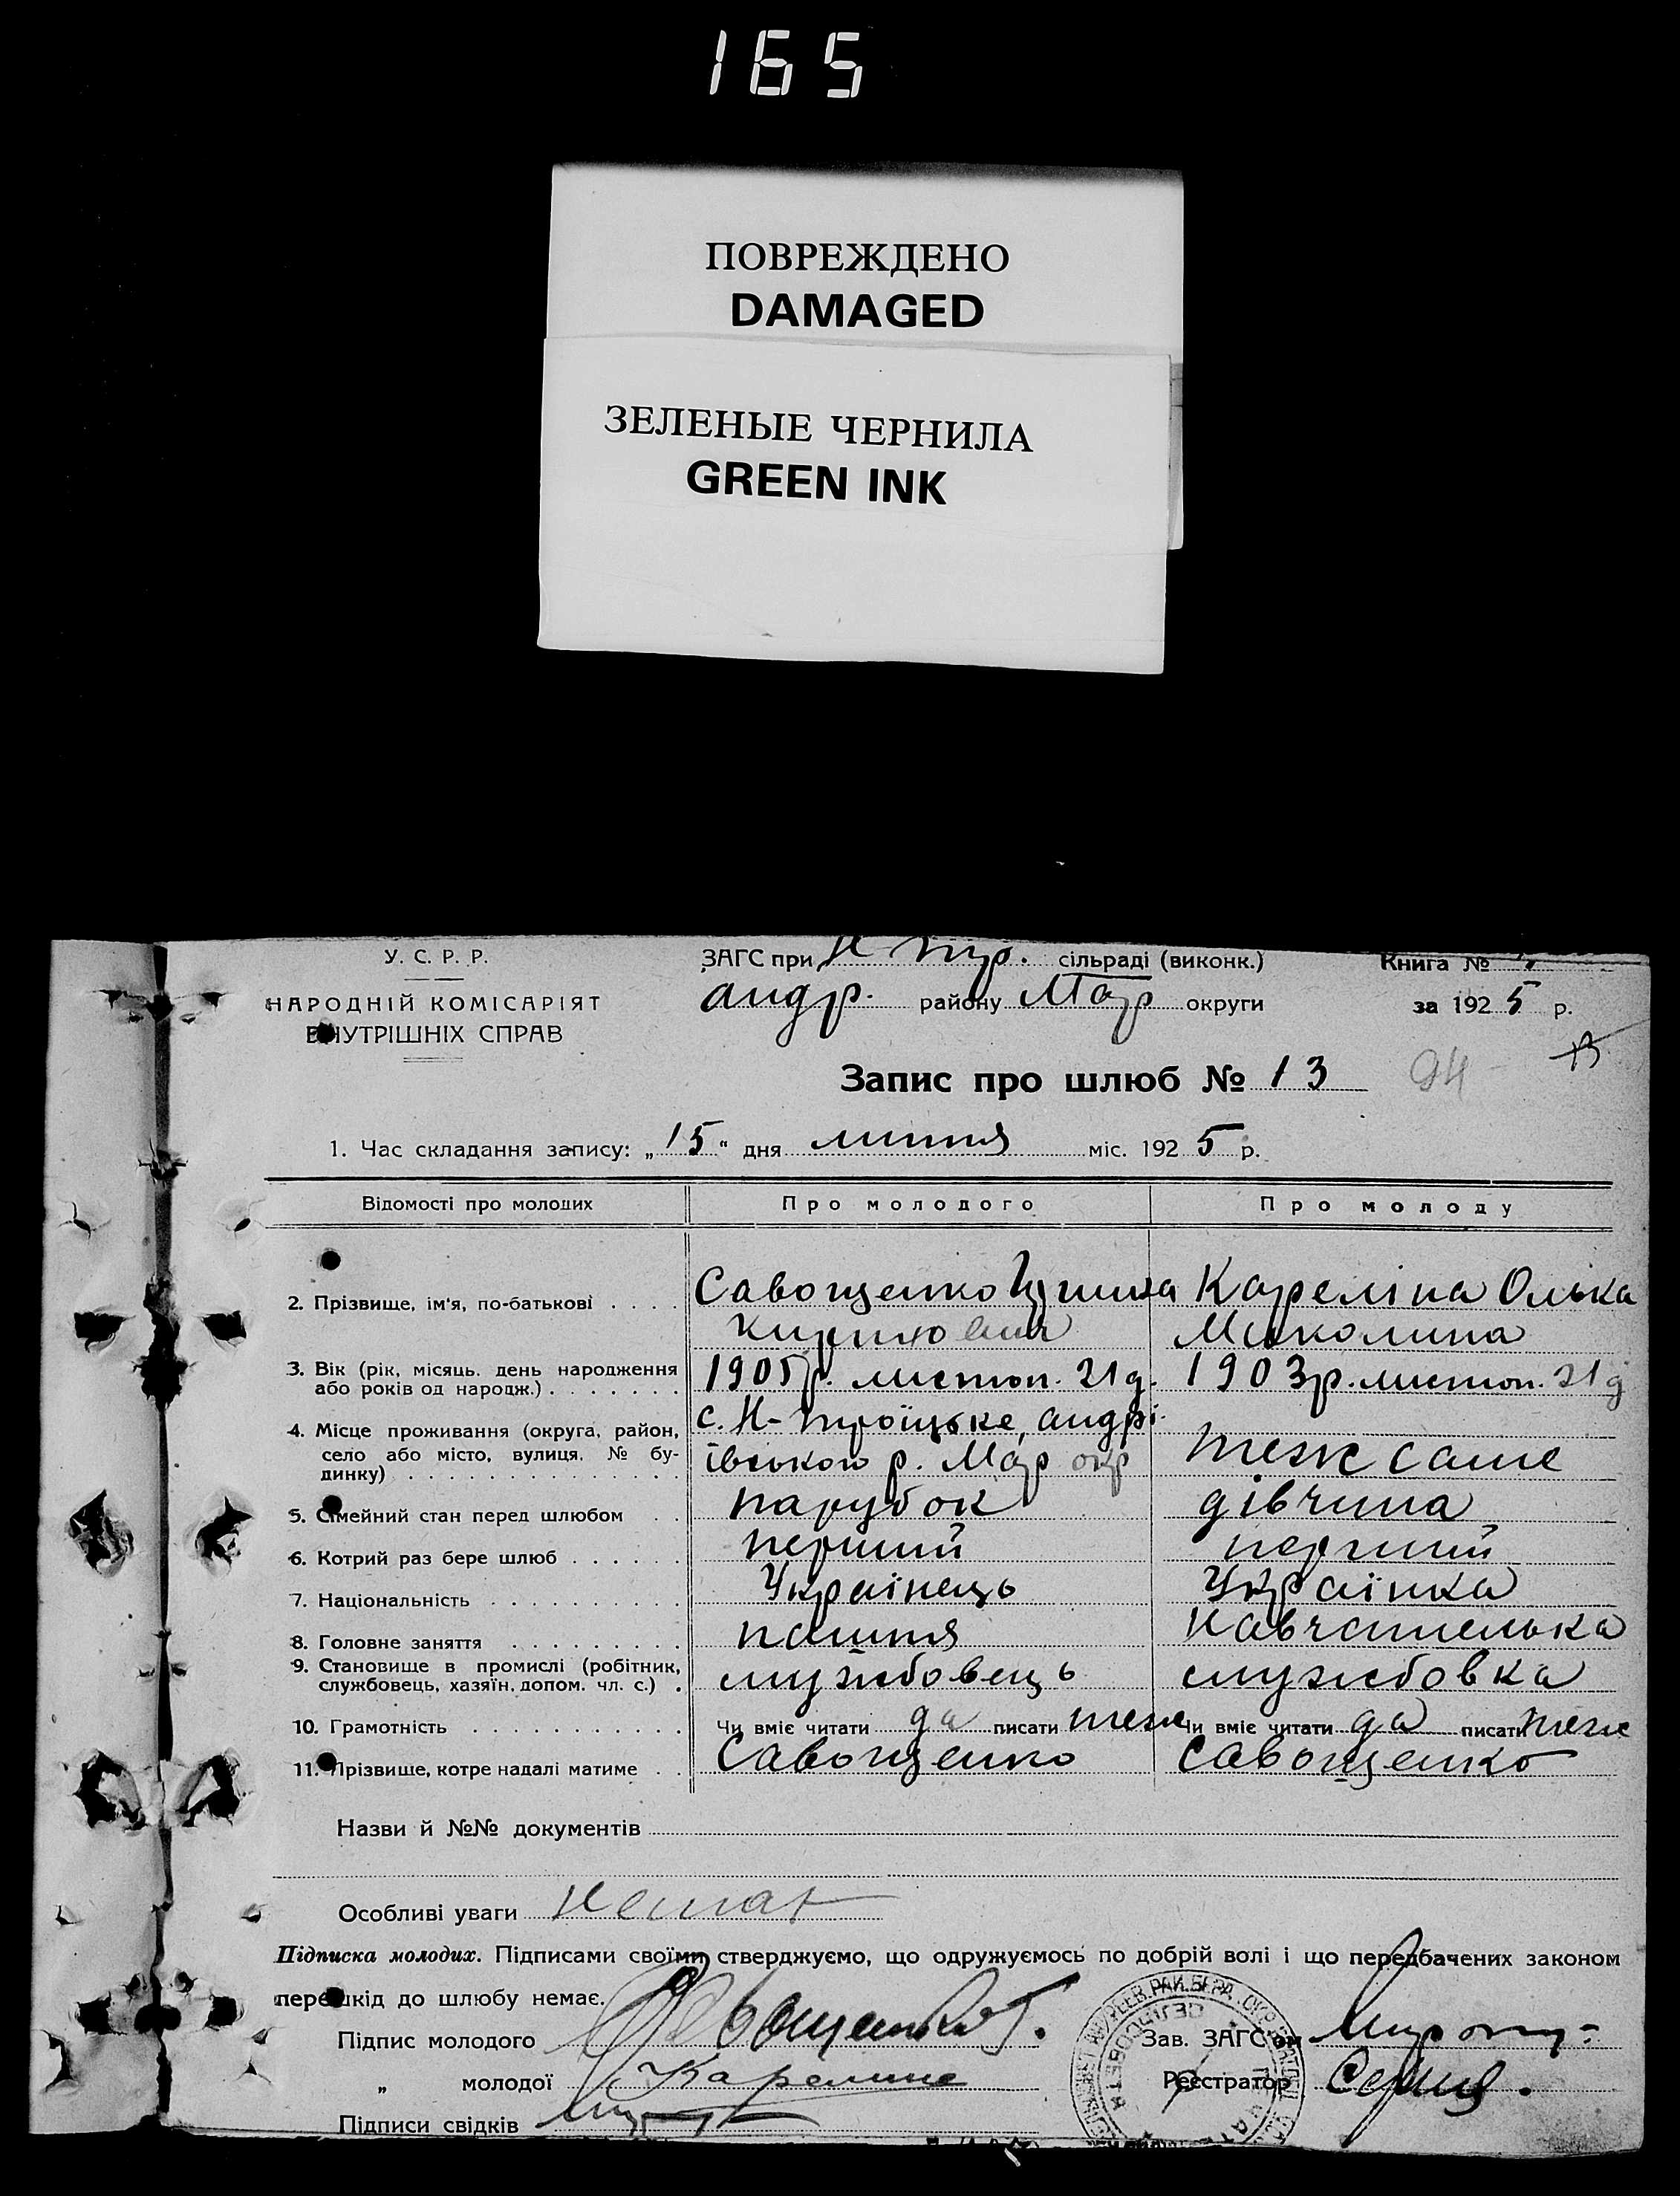 165
ПОВРЕЖДЕНО
DAMAGED
ЗЕЛЕНЫЕ ЧЕРНИЛА
GREEN INK
У. С. Р. Р.
НАРОДНІЙ КОМІСАРІЯТ
ВНУТРІШНІХ СПРАВ
ЗАГС при Н Тр. сільраді (виконк.)
Андр. району Мар округи
Книга №
за 1925 р.
Запис про шлюб № 13
94
13
1. Час складання запису: „15“ дня липня міс. 1925 р.
Відомості про молодих Про молодого Про молоду
2. Прізвище, ім'я, по-батькові Савощенко Кареліна Олька
Миколина
3. Вік (рік, місяць, день народження
або років од народж.) 1905 р. листоп. 21 д. 1903 р. листоп. 21 д
4. Місце проживання (округа, район,
село або місто, вулиця, № бу-
динку)
с. Н-Троїцьке, Андрі-
ївського р. Мар окр теж саме
5. Сімейний стан перед шлюбом парубок дівчина
6. Котрий раз бере шлюб перший перший
7. Національність Українець Українка
8. Головне заняття навчателька
9. Становище в промислі (робітник,
службовець, хазяїн, допом. чл. с.) службовець службовка
10. Грамотність Чи вміє читати да писати теж Чи вміє читати да писати теж
11. Прізвище, котре надалі матиме Савощенко Савощенко
Назви й №№ документів
Особливі уваги немає
Підписка молодих. Підписами своїми стверджуємо, що одружуємось по добрій волі і що передбачених законом
перешкід до шлюбу немає.
Підпис молодого Савощенко Г. Зав. ЗАГС'ом
„ молодої Карелина Реєстратор
Підписи свідків